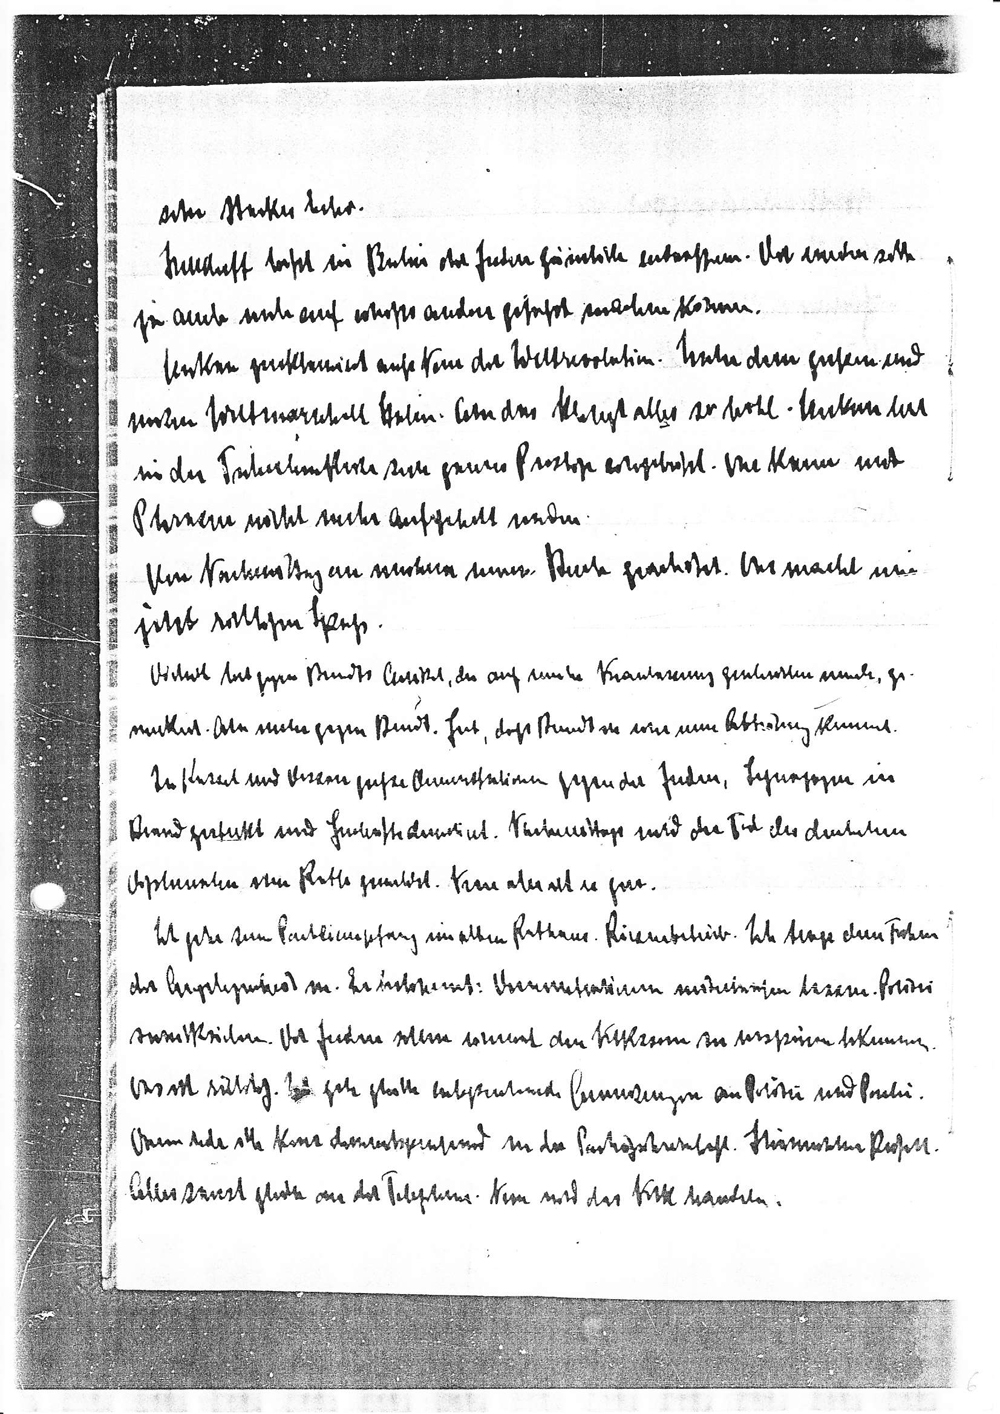 sehr starkes Echo.
Helldorff läßt in Berlin die Juden gänzlich entwaffnen. Die werden sich
ja auch noch auf einiges andere gefaßt machen können.
proklamiert aufs Neue die Weltrevolution. Unter dem großen und
Stalin. Aber das klingt alles so hohl. hat
in der Tschechenkrise sein ganzes Prestige eingebüßt. Das kann mit
Phrasen nicht mehr aufgeholt werden.
Am Nachmittag an meinem neuen Buch gearbeitet. Das macht mir
jetzt richtigen Spaß.
Dietrich hat gegen Berndts Artikel, der auf meine Veranlassung geschrieben wurde, ge-
meckert. Aber mehr gegen Berndt. Gut, daß Berndt in eine neue Abteilung kommt.
In Kassel und Dessau große Demonstrationen gegen die Juden, Synagogen in
Brand gesteckt und Geschäfte demoliert. Nachmittags wird der Tod des deutschen
Diplomaten vom Rath gemeldet. Nun aber ist es gar.
Ich gehe zum Parteiempfang im alten Rathaus. Riesenbetrieb. Ich trage dem Führer
die Angelegenheit vor. Er bestimmt: Demonstrationen weiterlaufen lassen. Polizei
zurückziehen. Die Juden sollen einmal den Volkszorn zu verspüren bekommen.
Das ist richtig. Ich gebe gleich entsprechende Anweisungen an Polizei und Partei.
Dann rede ich kurz dementsprechend vor der Parteiführerschaft. Stürmischer Beifall.
Alles saust gleich an die Telephone. Nun wird das Volk handeln.